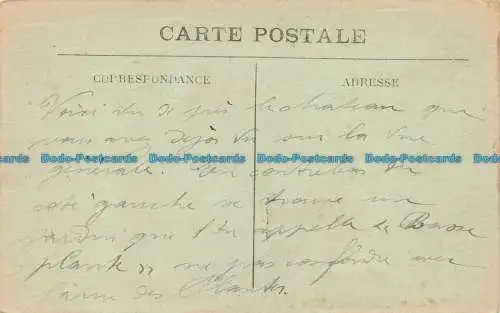 CARTE POSTALE
CORRESPONDANCE
ADRESSE
Voici vu de près le chateau que
vous avez déjà vu sur la vue
générale. En contrebas du
coté gauche se trouve un
jardin que l'on appelle la Basse
plante à ne pas confondre avec
la rue des Plantes.
Dodo-Postcards Dodo-Postcards Dodo-Postcards Dodo-Postcards Dodo-Postcards